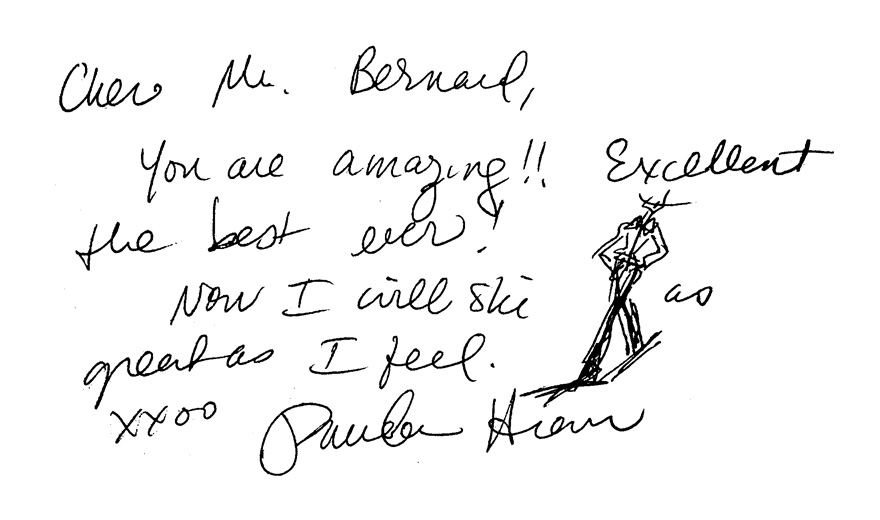 Cher Mr. Bernard,
You are amazing!! Excellent
the best ever!
Now I will ski as
great as I feel.
xxoo